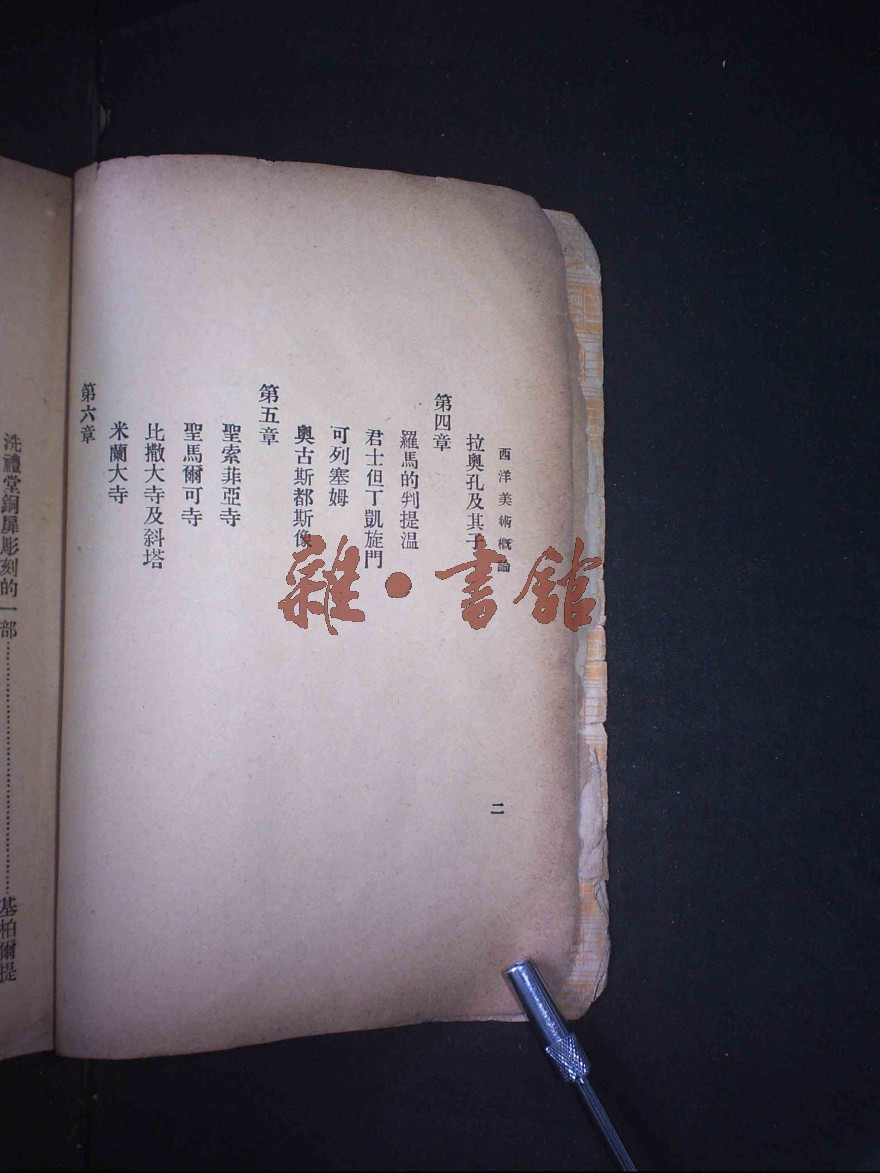 西洋美術概論
二
拉奧孔及其子
第四章
羅馬的判提溫
君士但丁凱旋門
可列塞姆
奧古斯都斯像
第五章
聖索菲亞寺
聖馬爾可寺
比撒大寺及斜塔
米蘭大寺
第六章
洗禮堂銅扉彫刻的一部……基柏爾提
雜·書館